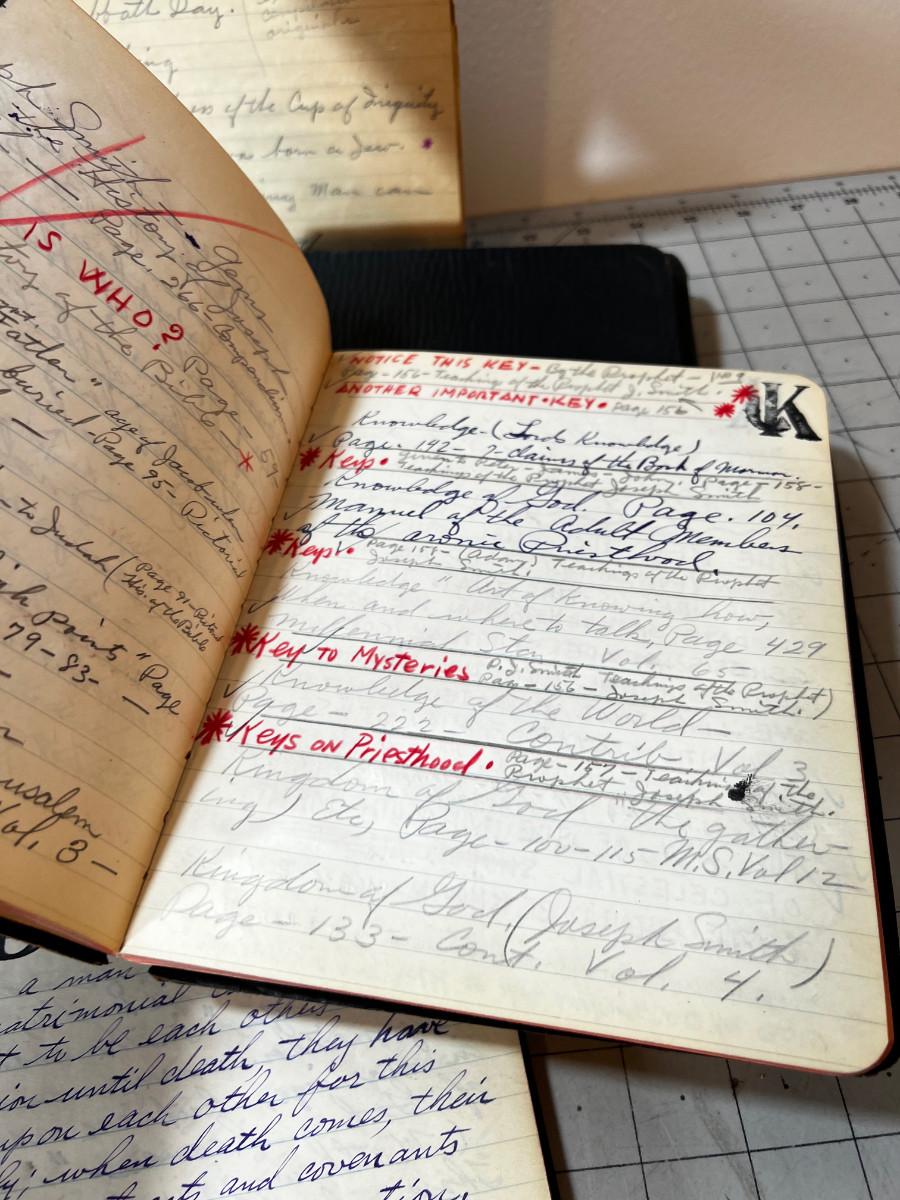 bath Day.
ess of the Cup of Iniquity
born a Jew.
Man can
ph Smith
the History. Genus
Page. 266- Compendium
IS WHO?
of Joseph
try of the Bible Page - 54
Father " age of Jacob when
buried Page 95- Pictorial
- to Judah (Page 91- Pict
His. of the Bible
igh points " Page
79-83- —
usalem
Vol. 3 -
NOTICE THIS KEY- By the Prophet -
Page-156-Teaching of the Prophet J. Smith
ANOTHER IMPORTANT•KEY• page 156
JK
Knowledge. (Lords Knowledge)
Page. 192- 7-claims of the Book of Mormon
Keys• Page-158-
Teachings of the Prophet Joseph Smith
Knowledge of God. Page. 104.
Manuel of the Adult Members
of the aronic Priesthood.
Keys• Page 157- (Adam) Teachings of the Prophet
Joseph Smith.
Knowledge "Art of Knowing how,
When and where to talk, Page 429
Millennial Star Vol. 65-
Key to Mysteries P. J. Smith Teachings of the Prophet)
Page-156- Joseph Smith.)
Knowledge of the World -
Page - 222- Contrib. Vol 3
Keys on Priesthood. Page-157- Teachings of the
Prophet. Joseph Smith.
Kingdom of God "the gather-
ing) Etc, Page-100-115 M.S. Vol 12
Kingdom of God. (Joseph Smith)
Page - 133- Cont. Vol. 4.
a man
atrimonial
t to be each others
ion until death, they have
upon each other for this
ly; when death comes, their
and covenants